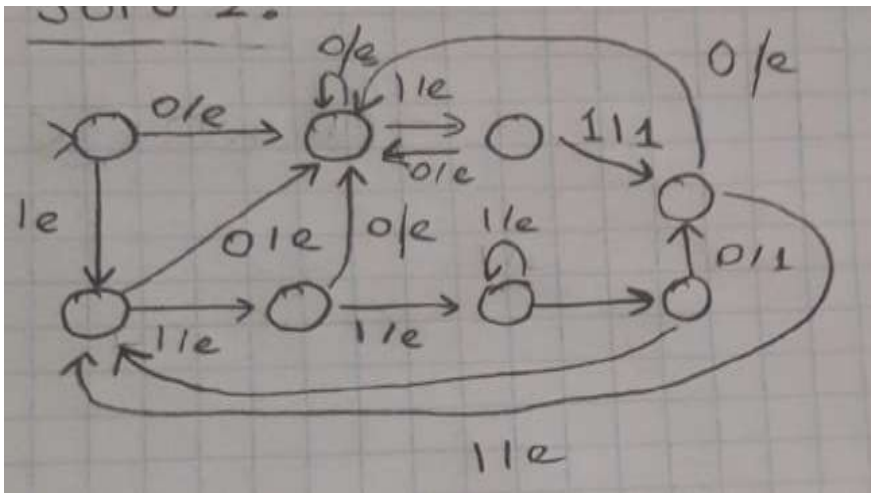 0/e
0/e
1/e
0/e
1/1
0/e
1e
0/e
0/e
1/e
0/1
1/e
1/e
1/e